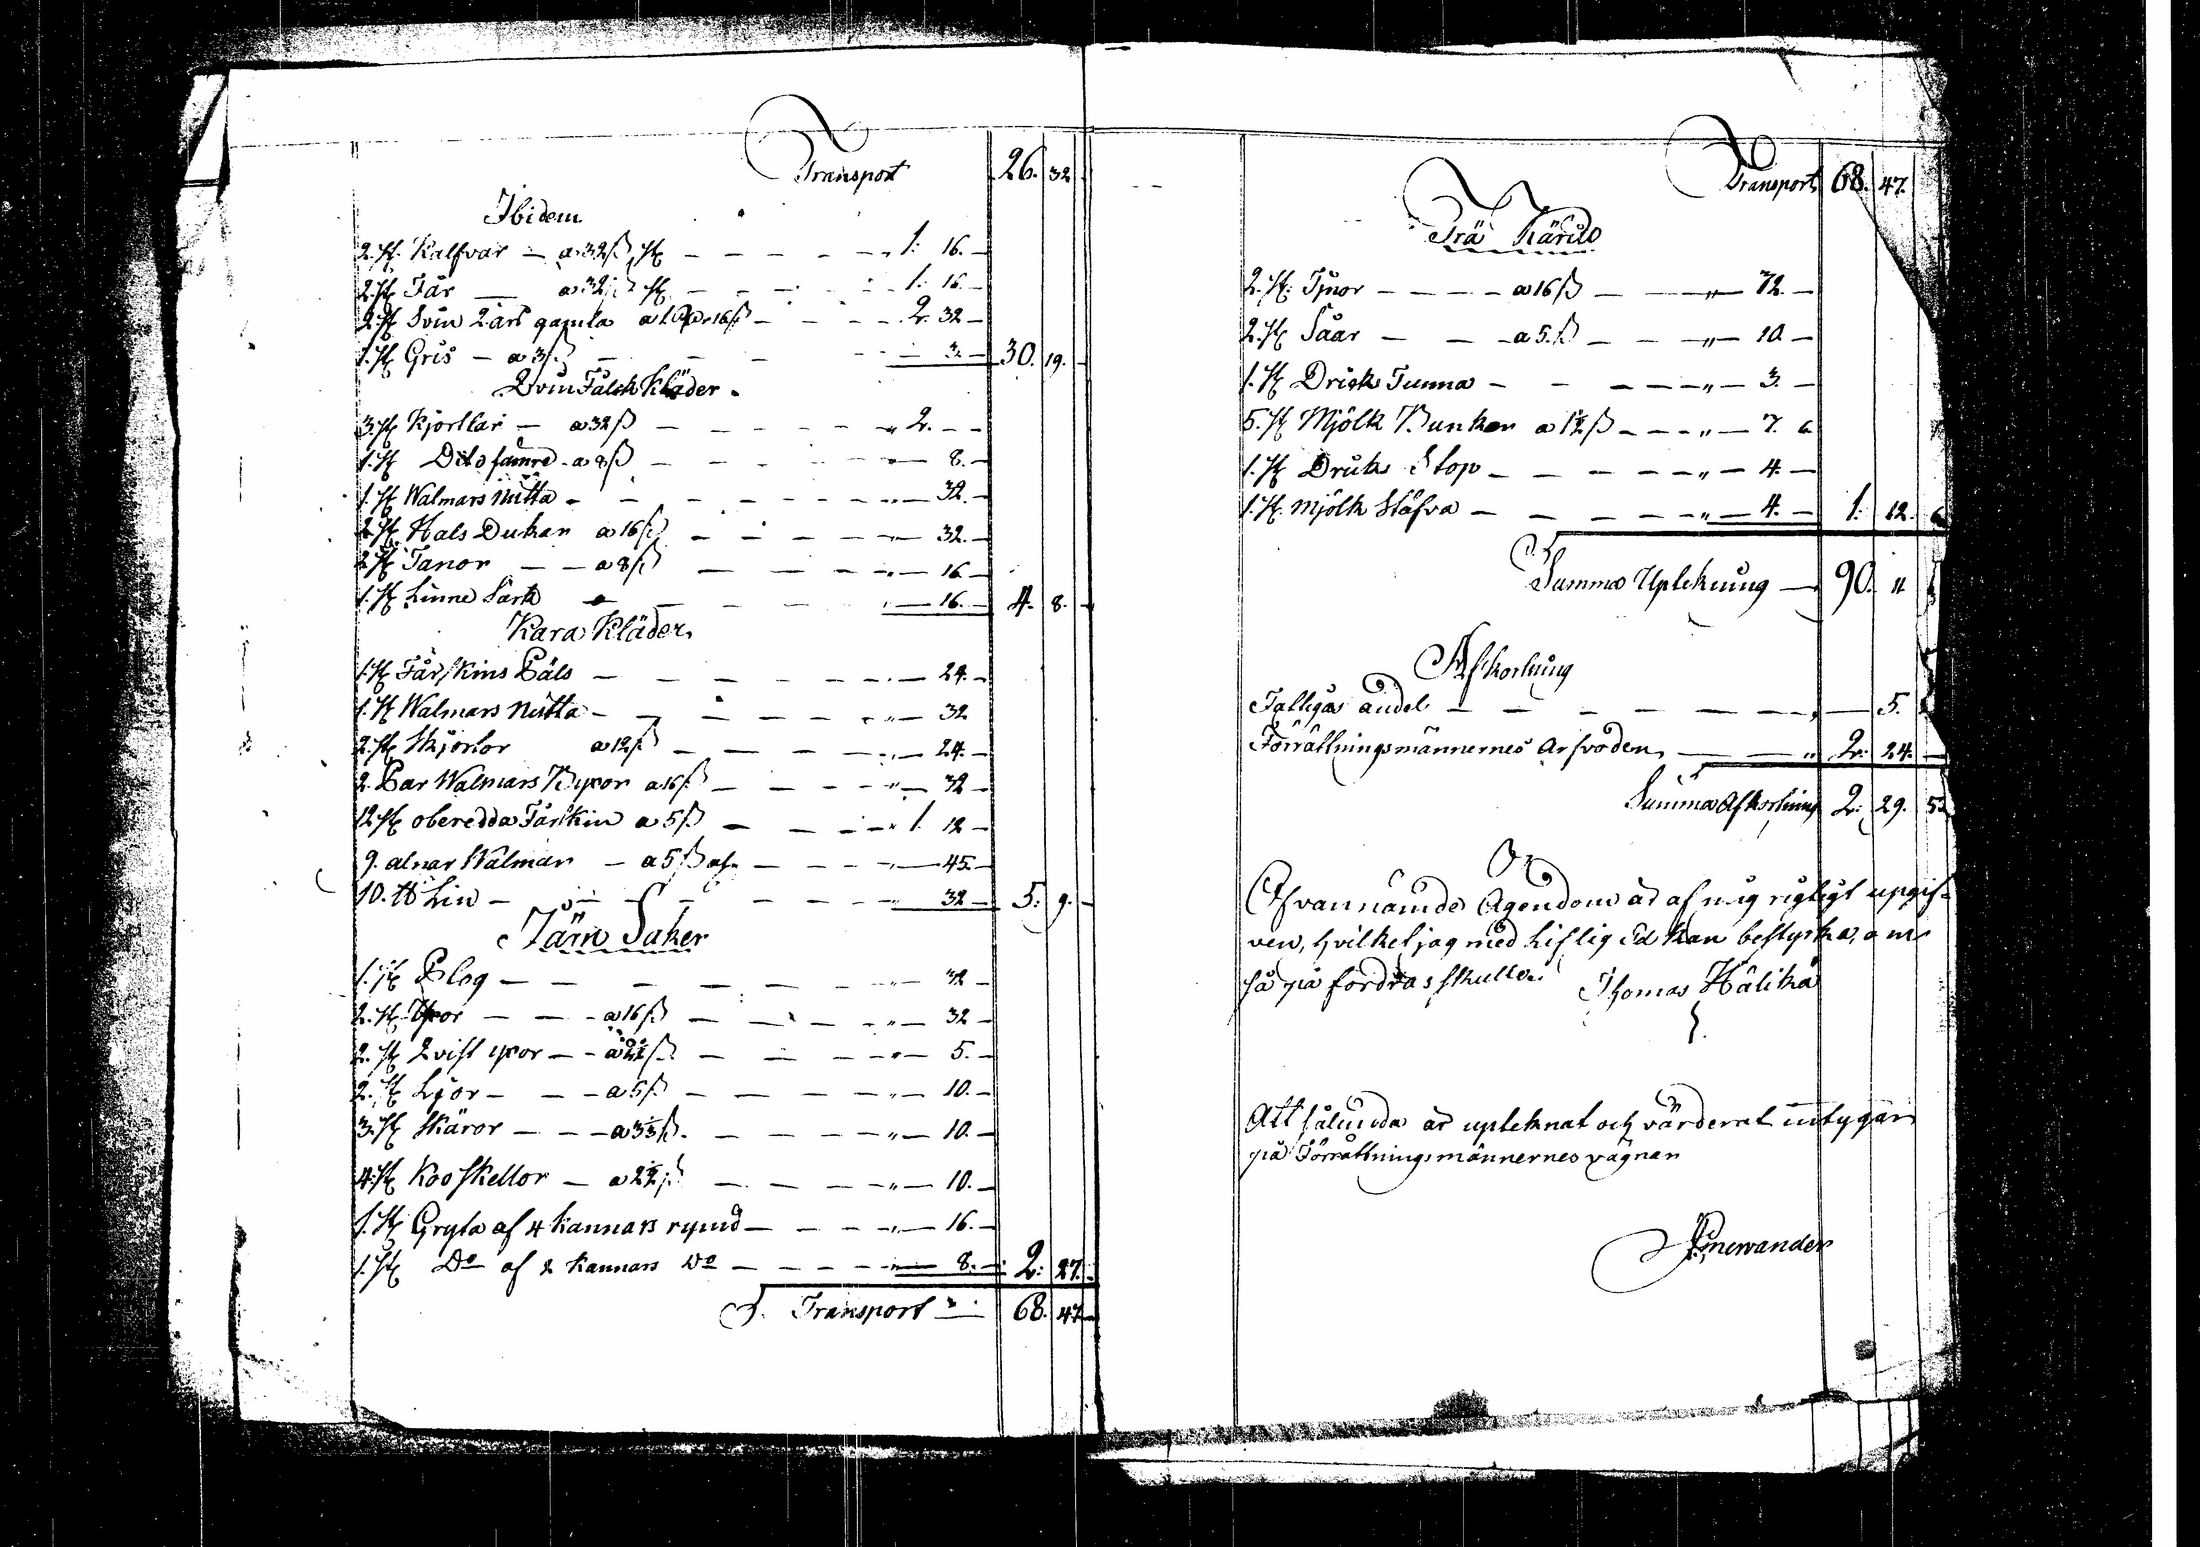 Transport 26. 32
Ibidem
2. st. Kalfvar — a 32 ß st — — — — „ 1: 16. —
2. st Får — a 32 ß st — — — 1. 16. —
2. st Svin 2 års gamla a 1. Rdr 16 ß — — — 2. 32 —
1. st Gris — a 3 ß — — — 3. — 30. 19.
Qvin Fålck Kläder.
3. st Kjortlar — a 32 ß — — — „ 2. — —
1. st Dito sämre a 8 ß — — — „ — 8. —
1. st Walmars Mütta — — — „ — 32. —
2. st Hals Dukar a 16 ß — — — „ — 32. —
2. st Tanor — — a 8 ß — — — „ — 16 —
1. st Linne Särk — — — „ — 16. — 4. 8. —
Kara Kläder
1. st Fårskins Päls — — — „ — 24. —
1. st Walmars Mütta — — — „ — 32
2. st Skjortor a 12 ß — — — „ — 24. —
2. Par Walmars Byxor a 16 ß — — — „ — 32 —
12 st oberedda Fårskin a 5 ß — — — „ 1. 12 —
9. alnar Walmar — a 5 ß aln — — — „ — 45. —
10. ℔ Lin — — — „ 32 — 5. 9. —
Järn Saker
1. st Plog — — — „ — 32 —
2. st Yxor — — — a 16 ß — — — „ — 32 —
2. st Qvist yxor — — a 2½ ß — — — „ — 5. —
2. st Ljor — — — a 5 ß — — — „ — 10. —
3. st Skäror — — — a 3⅓ ß — — — „ — 10. —
4. st Koo Skellor — a 2½ ß — — — „ — 10. —
1. st Gryta af 4 Kannars rymd — — — „ — 16. —
1. st Do af 2 Kannars Do — — — „ — 8. — 2: 27.
S. Transport — 68. 47
Transport 68. 47.
Trä Käril
2. st. Tjnor — — — — a 16 ß — — „ — 72. —
2. st Såar — — — a 5. ß — — „ — 10. —
1. st Dricks Tunna — — — — „ — 3. —
5. st Mjölk Bunkar a 1½ ß — — — „ — 7. 6
1. st Driks Stop — — — — „ — 4. —
1. st. Mjölk Stäfva — — — — „ — 4. — 1. 12. 6
Summa Upteknung — 90. 11
Afkortning
Fattigas andel — — — — „ — 5.
Förrättningsmännernes Arfvoden — — „ 2: 24. —
Summa Afkortning 2: 29. 5
Ofvannämde Ägendom är af mig rigtigt upgif=
ven, hvilket jag med Liflig Ed Kan bestyrka, om
så på fordras skulle. Thomas Hälikä
Att sålunda är upteknat och värderat intygar
på Förrättningsmännernes vägnar